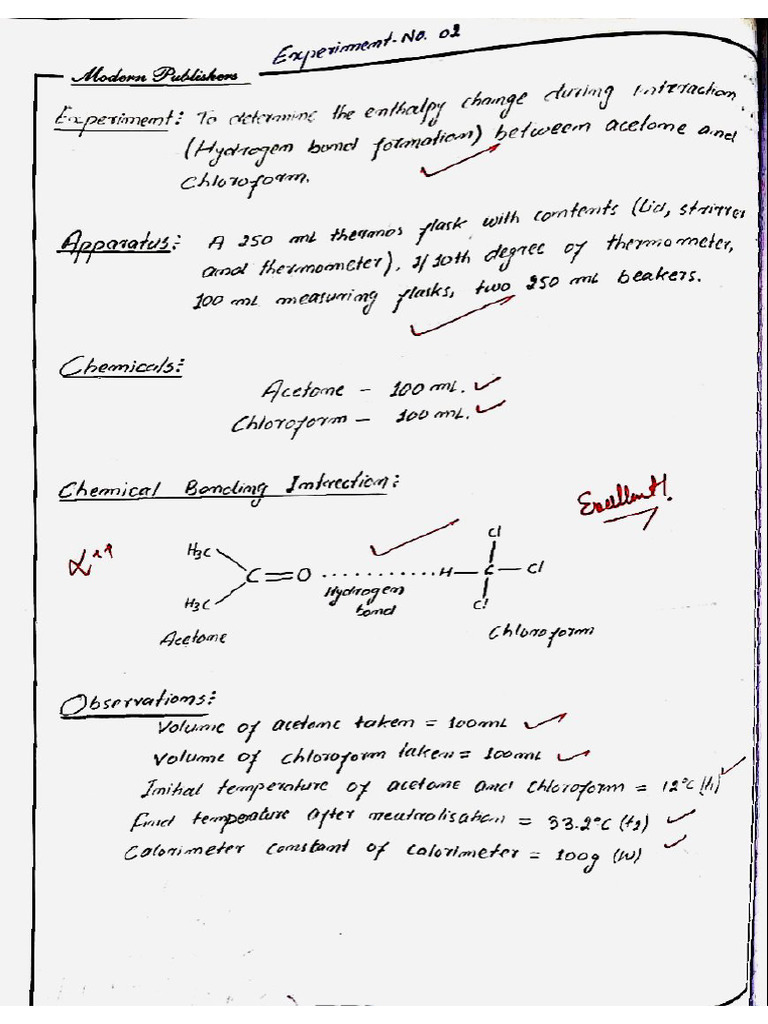 Experiment-No. 02
Modern Publishers
Experiment: To determine the enthalpy change during interaction
(Hydrogen bond formation) between acetone and
chloroform.
Apparatus: A 250 mL thermos flask with contents (Lid, stirrer
and thermometer), 1/10th degree of thermometer,
100 mL measuring flasks, two 250 mL beakers.
Chemicals:
Acetone - 100 mL.
Chloroform - 100 mL.
Chemical Bonding Intrection:
Excellent!
H3C
H3C
C=O
Hydrogen
bond
H-C-Cl
Cl
Cl
Acetone
Chloroform
Observations:
Volume of acetone taken = 100mL
Volume of chloroform taken = 100mL
Initial temperature of acetone and chloroform = 12°C (t1)
Final temperature after neutralisation = 33.2°C (t2)
Calorimeter constant of calorimeter = 100g (W)